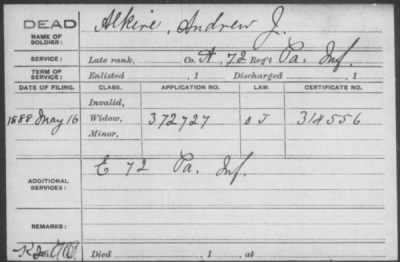 DEAD
NAME OF SOLDIER: Alkire, Andrew J.
SERVICE: Late rank, Co. A, 72 Reg't Pa. Inf.
TERM OF SERVICE: Enlisted , 1 Discharged , 1
DATE OF FILING. CLASS. APPLICATION NO. LAW. CERTIFICATE NO.
Invalid,
1888 May 16 Widow, 372727 314556
Minor,
ADDITIONAL SERVICES: E 72 Pa. Inf.
REMARKS:
Died , 1 , at